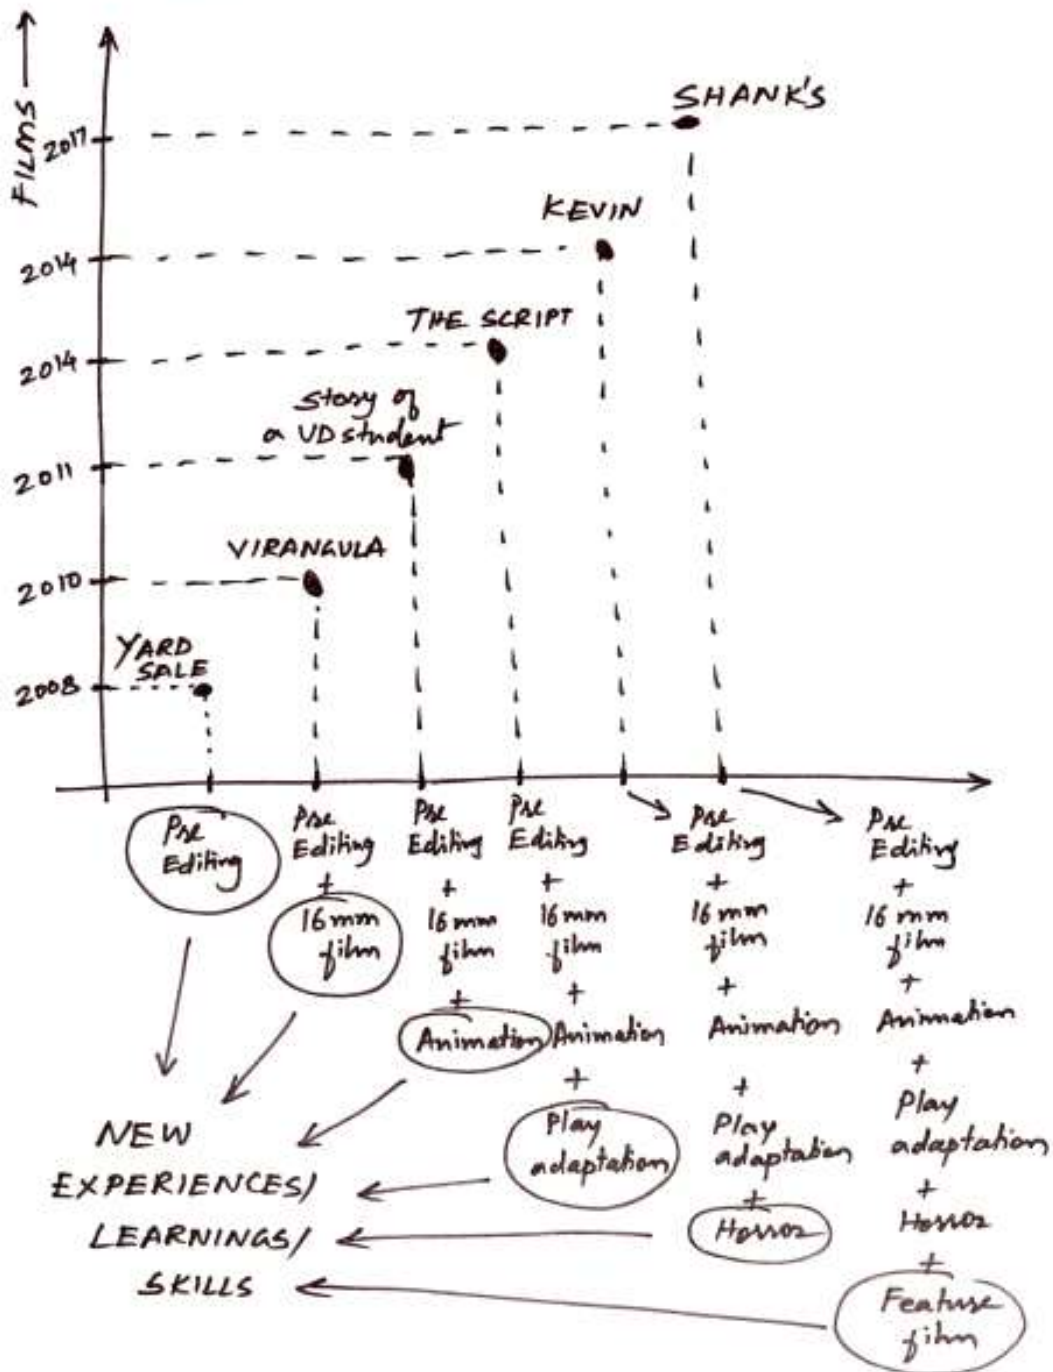 FILMS
SHANK'S
2017
KEVIN
2014
THE SCRIPT
2014
Story of
a VD student
2011
VIRANGULA
2010
YARD
SALE
2008
Pre
Editing
Pre
Editing
+
16mm
film
Pre
Editing
+
16mm
film
+
Animation
Pre
Editing
+
16mm
film
+
Animation
+
Play
adaptation
Pre
Editing
+
16mm
film
+
Animation
+
Play
adaptation
+
Horror
Pre
Editing
+
16mm
film
+
Animation
+
Play
adaptation
+
Horror
+
Feature
film
NEW
EXPERIENCES/
LEARNINGS/
SKILLS